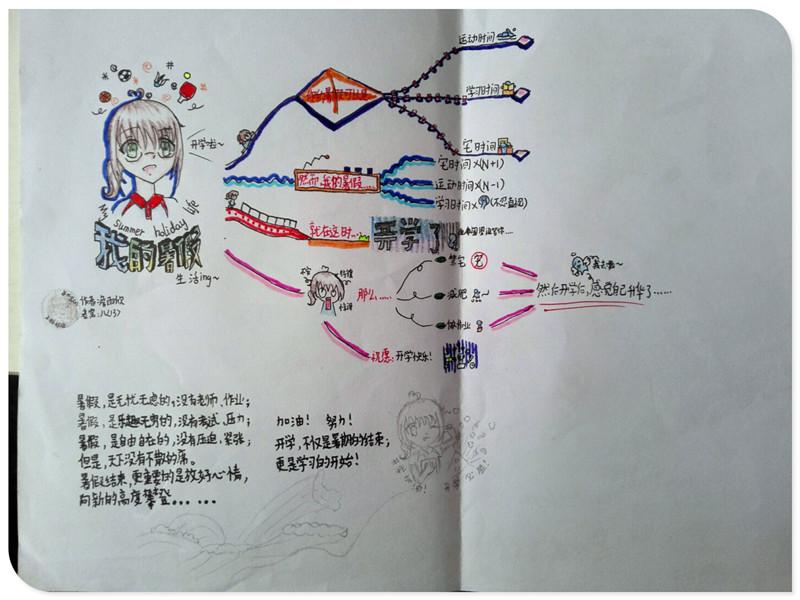 开学啦~
My summer holiday life
我的暑假
生活ing~
运动时间
学习时间
宅时间
然而,我的暑假……
宅时间×(N+1)
运动时间×(N-1)
学习时间× (不忍直视)
就在这时…
开学了
那么……
禁宅
减肥
做作业
然后开学后,感觉自己升华了……
祝愿:开学快乐!
暑假,是无忧无虑的,没有老师、作业;
暑假,是乐趣无穷的,没有考试、压力;
暑假,是自由自在的,没有压迫、紧张;
但是,天下没有不散的席。
暑假结束,更重要的是放好心情,
向新的高度攀登……
加油! 努力!
开学,不仅是暑期的结束;
更是学习的开始!